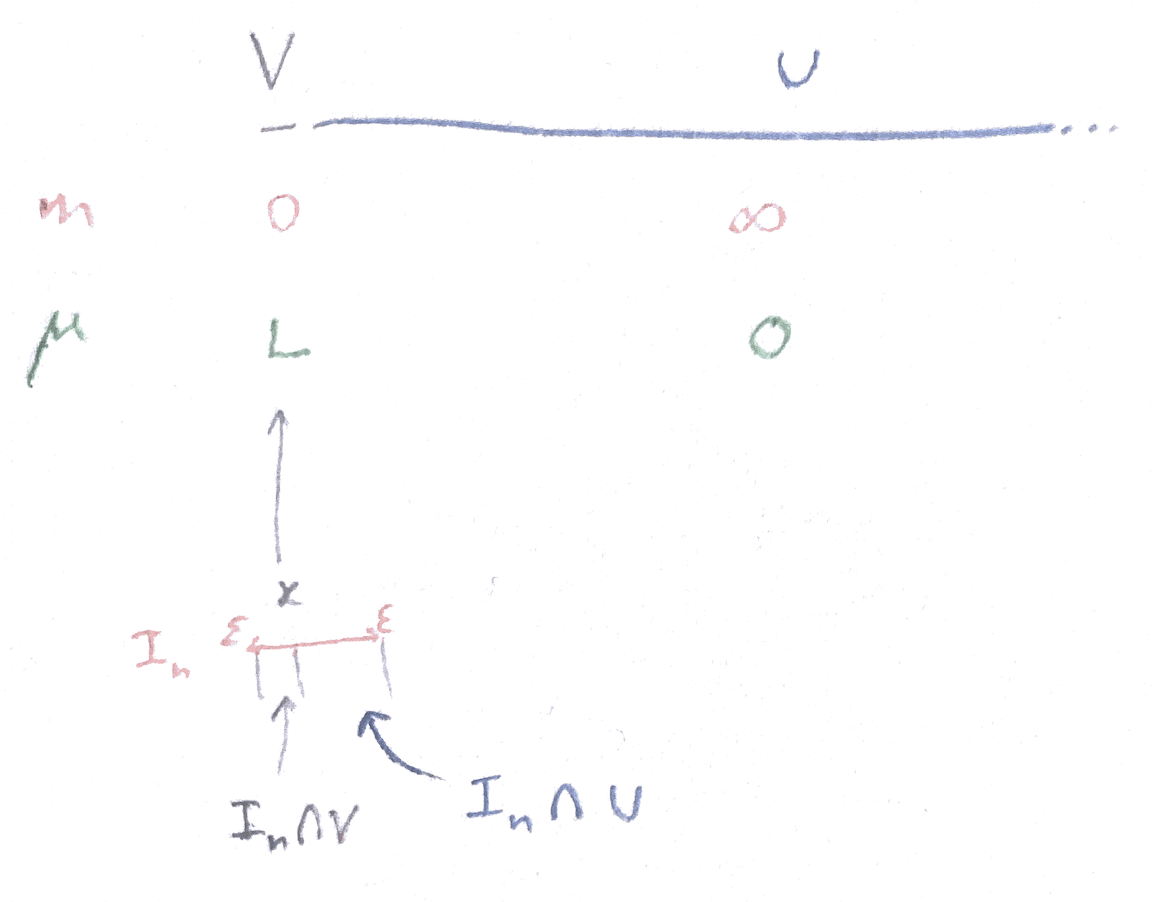 V U
...
m 0 ∞
μ L 0
x
I_n ε ε
I_n ∩ V I_n ∩ U